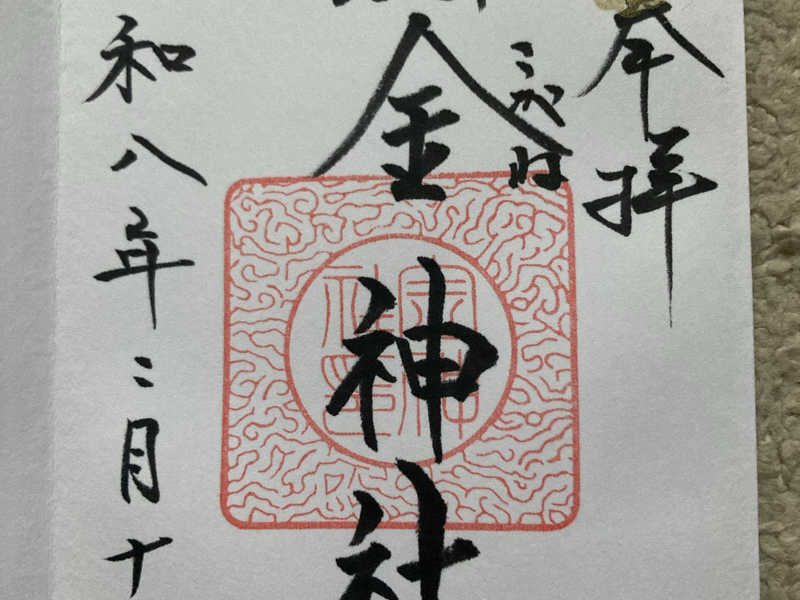 奉拝
こがね
金神社
和八年二月十